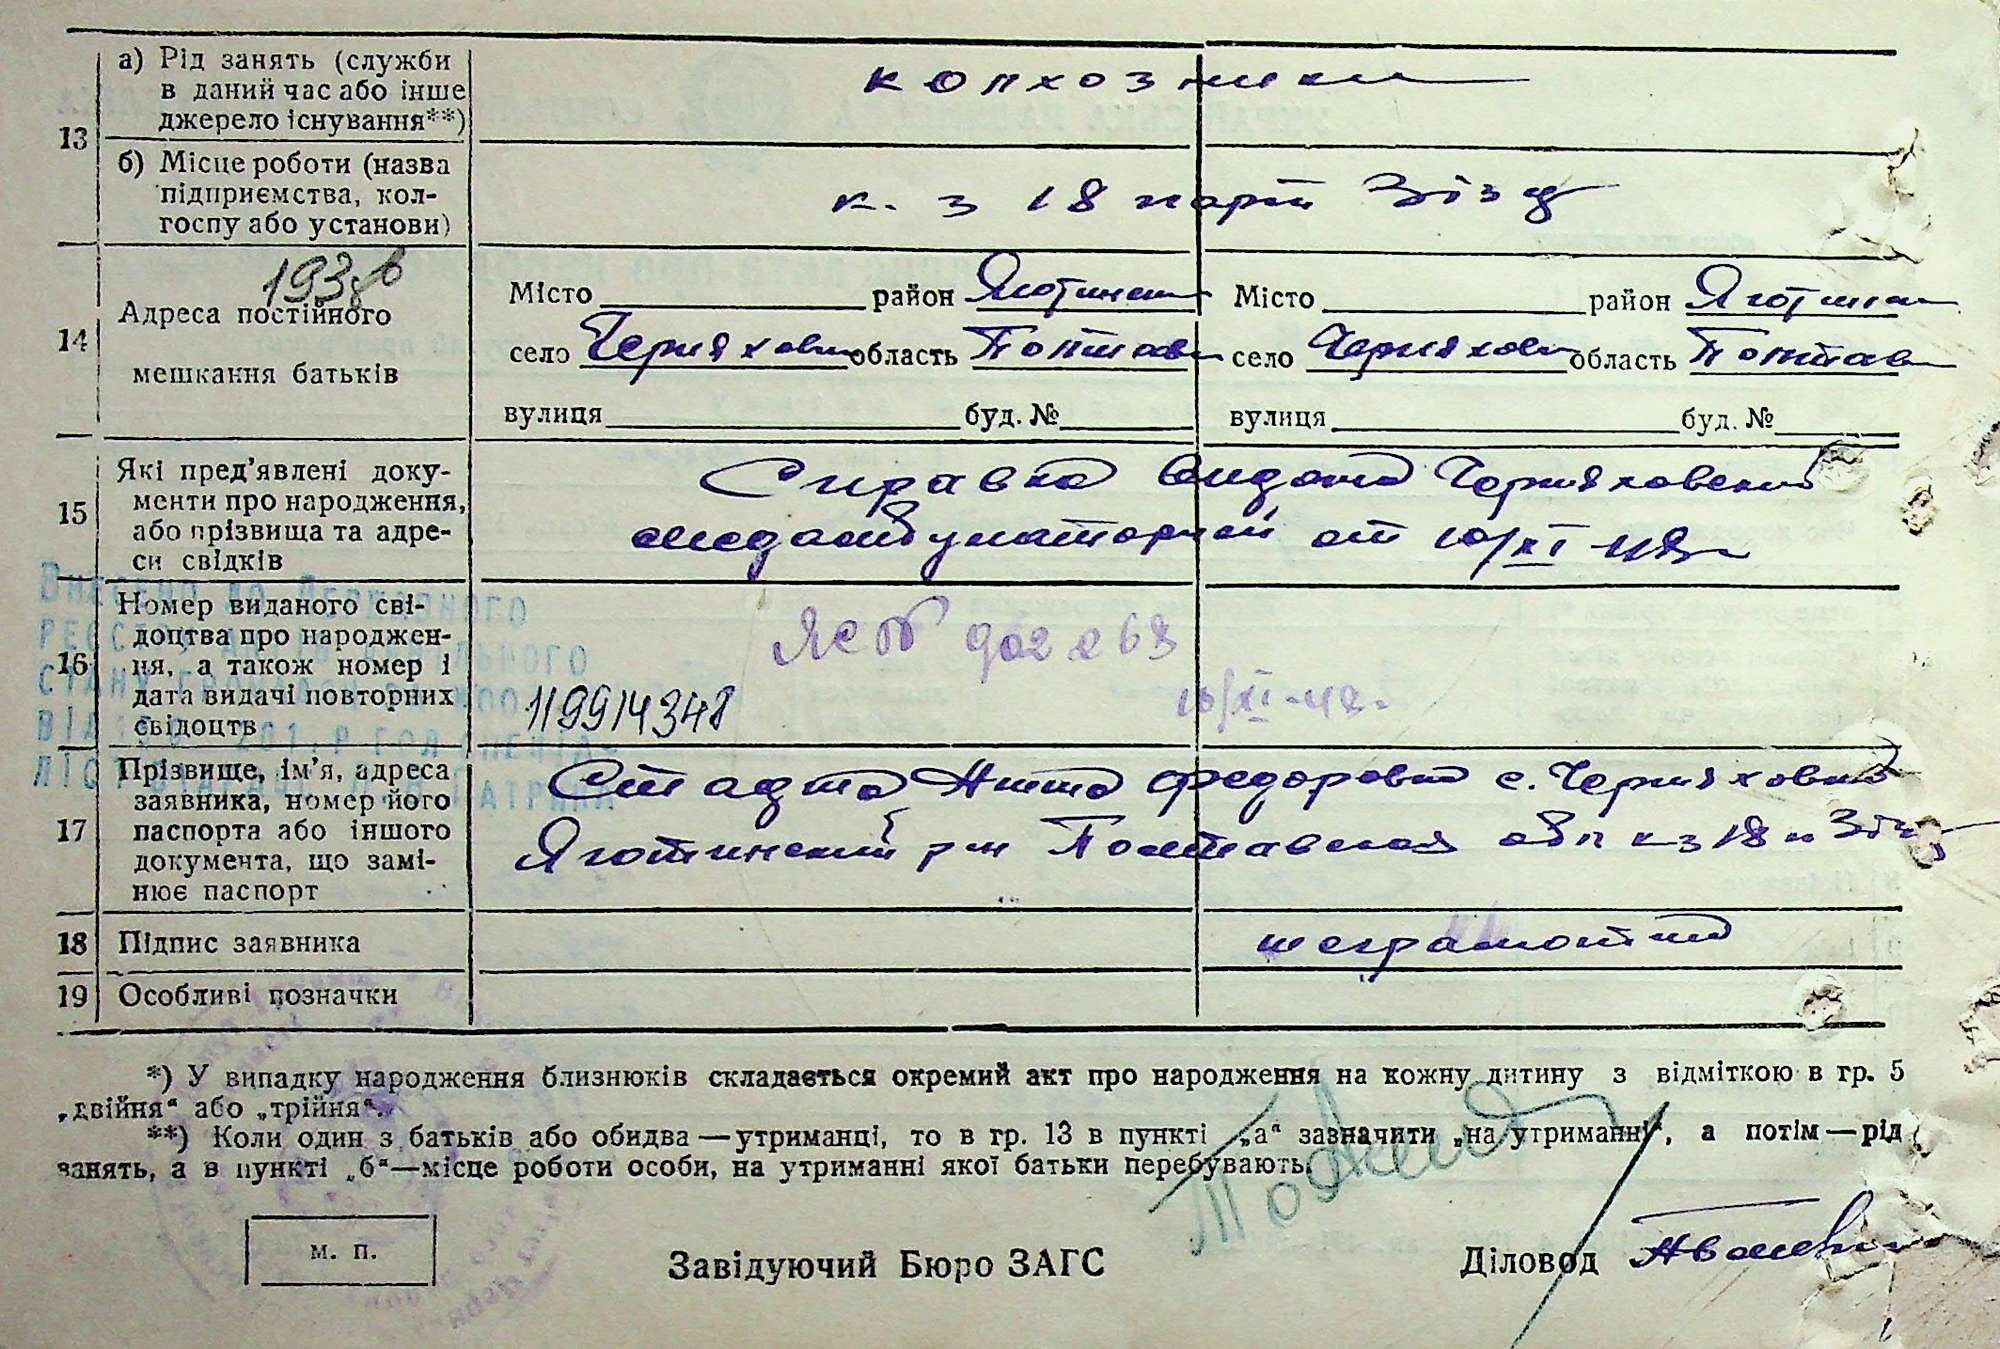 13
а) Рід занять (служби
в даний час або інше
джерело існування**)
колхозники
б) Місце роботи (назва
підприємства, кол-
госпу або установи)
к. з 18 парт Зізд
14
1938 в
Адреса постійного
мешкання батьків
Місто район Яготинськ Місто район Яготинськ
село Черняховк область Полтавк село Черняховк область Полтав
вулиця буд. № вулиця буд. №
15
Які пред'явлені доку-
менти про народження,
або прізвища та адре-
си свідків
Справка видана Черняховской
медамбулаторией от 10/XI-48
16
Номер виданого сві-
доцтва про народжен-
ня, а також номер і
дата видачі повторних
свідоцтв
902263
10/XI-48.
119914348
17
Прізвище, ім'я, адреса
заявника, номер його
паспорта або іншого
документа, що замі-
нює паспорт
Анна Федоровна с. Черняховка
Яготинский р-н Полтавская обл к-з 18 п Зізд
18 Підпис заявника
неграмотная
19 Особливі позначки
*) У випадку народження близнюків складається окремий акт про народження на кожну дитину з відміткою в гр. 5
„двійня“ або „трійня“.
**) Коли один з батьків або обидва—утриманці, то в гр. 13 в пункті „а“ зазначити „на утриманні“, а потім—рід
занять, а в пункті „б“—місце роботи особи, на утриманні якої батьки перебувають.
м. п.
Завідуючий Бюро ЗАГС
Діловод